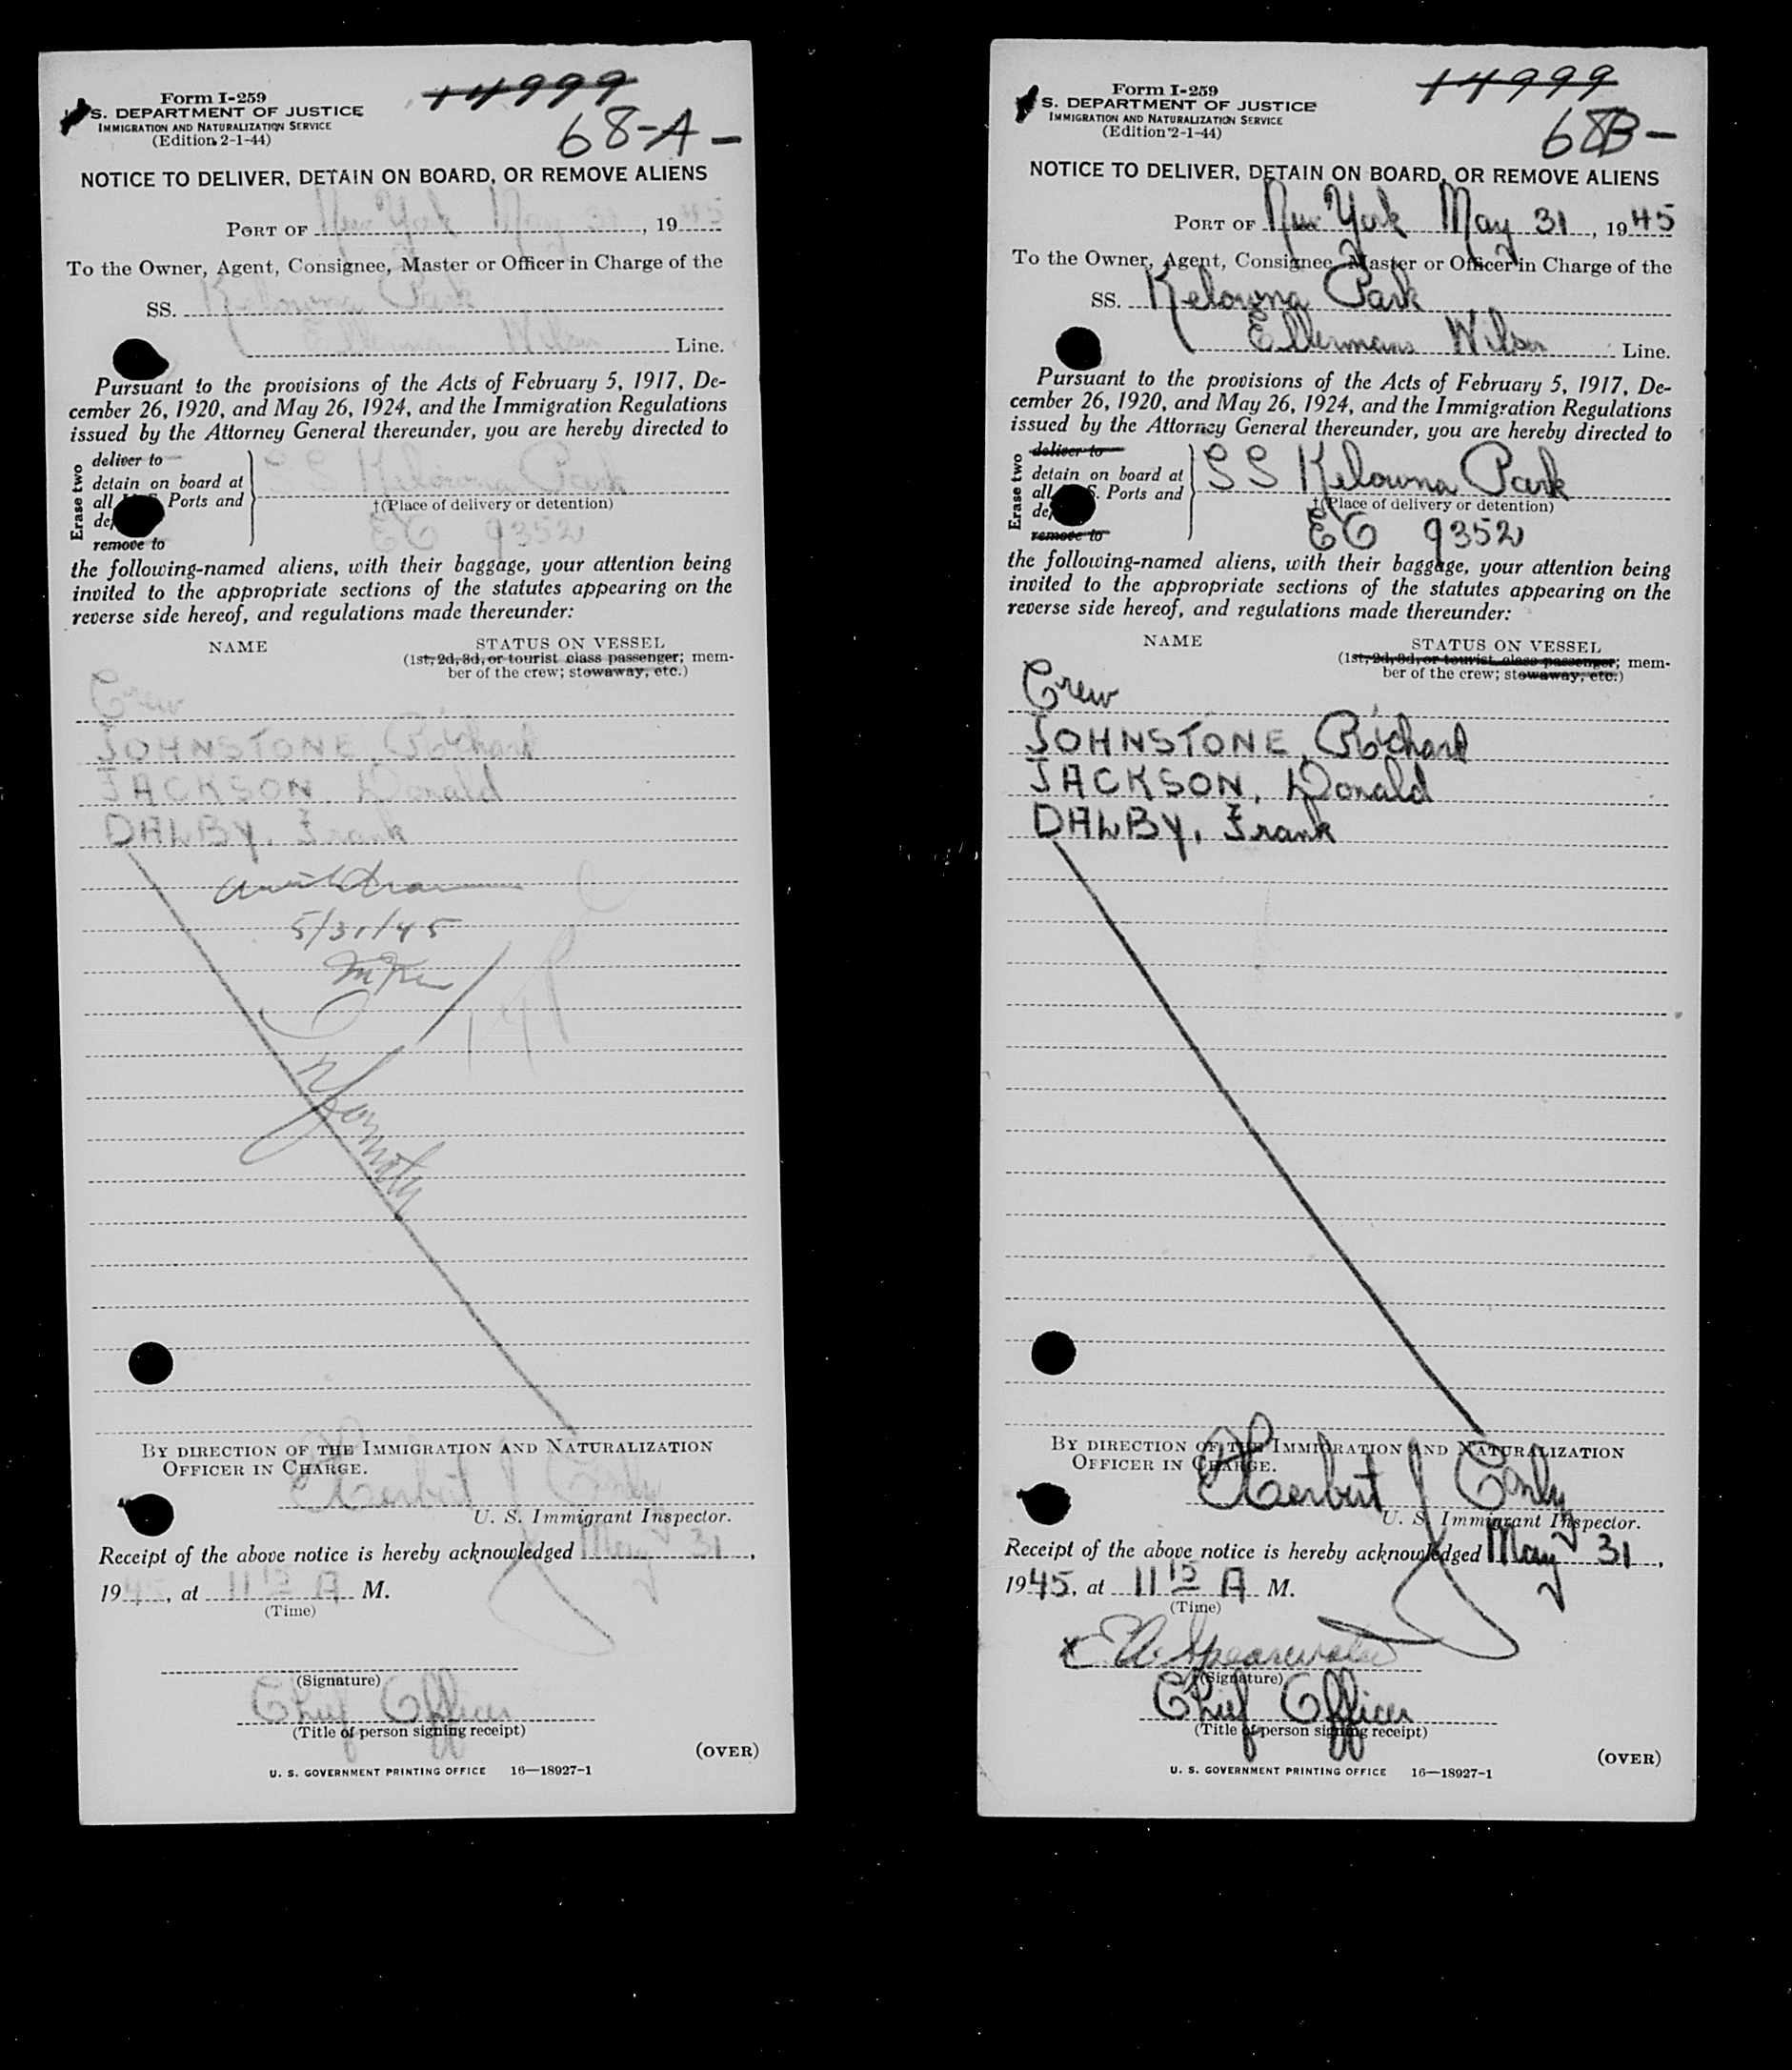 Form I-259
S. DEPARTMENT OF JUSTICE
IMMIGRATION AND NATURALIZATION SERVICE
(Edition 2-1-44)
14999
68-A-
NOTICE TO DELIVER, DETAIN ON BOARD, OR REMOVE ALIENS
PORT OF New York May 31, 1945
To the Owner, Agent, Consignee, Master or Officer in Charge of the
SS. Kelowna Park
Ellermans Wilson Line.
Pursuant to the provisions of the Acts of February 5, 1917, De-
cember 26, 1920, and May 26, 1924, and the Immigration Regulations
issued by the Attorney General thereunder, you are hereby directed to
Erase two
deliver to
detain on board at
all Ports and
remove to
SS Kelowna Park
†(Place of delivery or detention)
EC 9352
the following-named aliens, with their baggage, your attention being
invited to the appropriate sections of the statutes appearing on the
reverse side hereof, and regulations made thereunder:
NAME
STATUS ON VESSEL
(1st, 2d, 3d, or tourist class passenger; mem-
ber of the crew; stowaway, etc.)
Crew
JOHNSTONE, Richard
JACKSON, Donald
DALBY, Frank
5/31/45
BY DIRECTION OF THE IMMIGRATION AND NATURALIZATION
OFFICER IN CHARGE.
Herbert J
U. S. Immigrant Inspector.
Receipt of the above notice is hereby acknowledged May 31,
1945, at 11 15 A M.
(Time)
(Signature)
Chief Officer
(Title of person signing receipt)
(OVER)
U. S. GOVERNMENT PRINTING OFFICE 16—18927-1
Form I-259
S. DEPARTMENT OF JUSTICE
IMMIGRATION AND NATURALIZATION SERVICE
(Edition 2-1-44)
14999
68B-
NOTICE TO DELIVER, DETAIN ON BOARD, OR REMOVE ALIENS
PORT OF New York May 31, 1945
To the Owner, Agent, Consignee, Master or Officer in Charge of the
SS. Kelowna Park
Ellermans Wilson Line.
Pursuant to the provisions of the Acts of February 5, 1917, De-
cember 26, 1920, and May 26, 1924, and the Immigration Regulations
issued by the Attorney General thereunder, you are hereby directed to
Erase two
deliver to
detain on board at
all S. Ports and
remove to
SS Kelowna Park
†(Place of delivery or detention)
EC 9352
the following-named aliens, with their baggage, your attention being
invited to the appropriate sections of the statutes appearing on the
reverse side hereof, and regulations made thereunder:
NAME
STATUS ON VESSEL
(1st, 2d, 3d, or tourist class passenger; mem-
ber of the crew; stowaway, etc.)
Crew
JOHNSTONE, Richard
JACKSON, Donald
DALBY, Frank
BY DIRECTION OF THE IMMIGRATION AND NATURALIZATION
OFFICER IN CHARGE.
Herbert J
U. S. Immigrant Inspector.
Receipt of the above notice is hereby acknowledged May 31,
1945, at 11 15 A M.
(Time)
x
(Signature)
Chief Officer
(Title of person signing receipt)
(OVER)
U. S. GOVERNMENT PRINTING OFFICE 16—18927-1